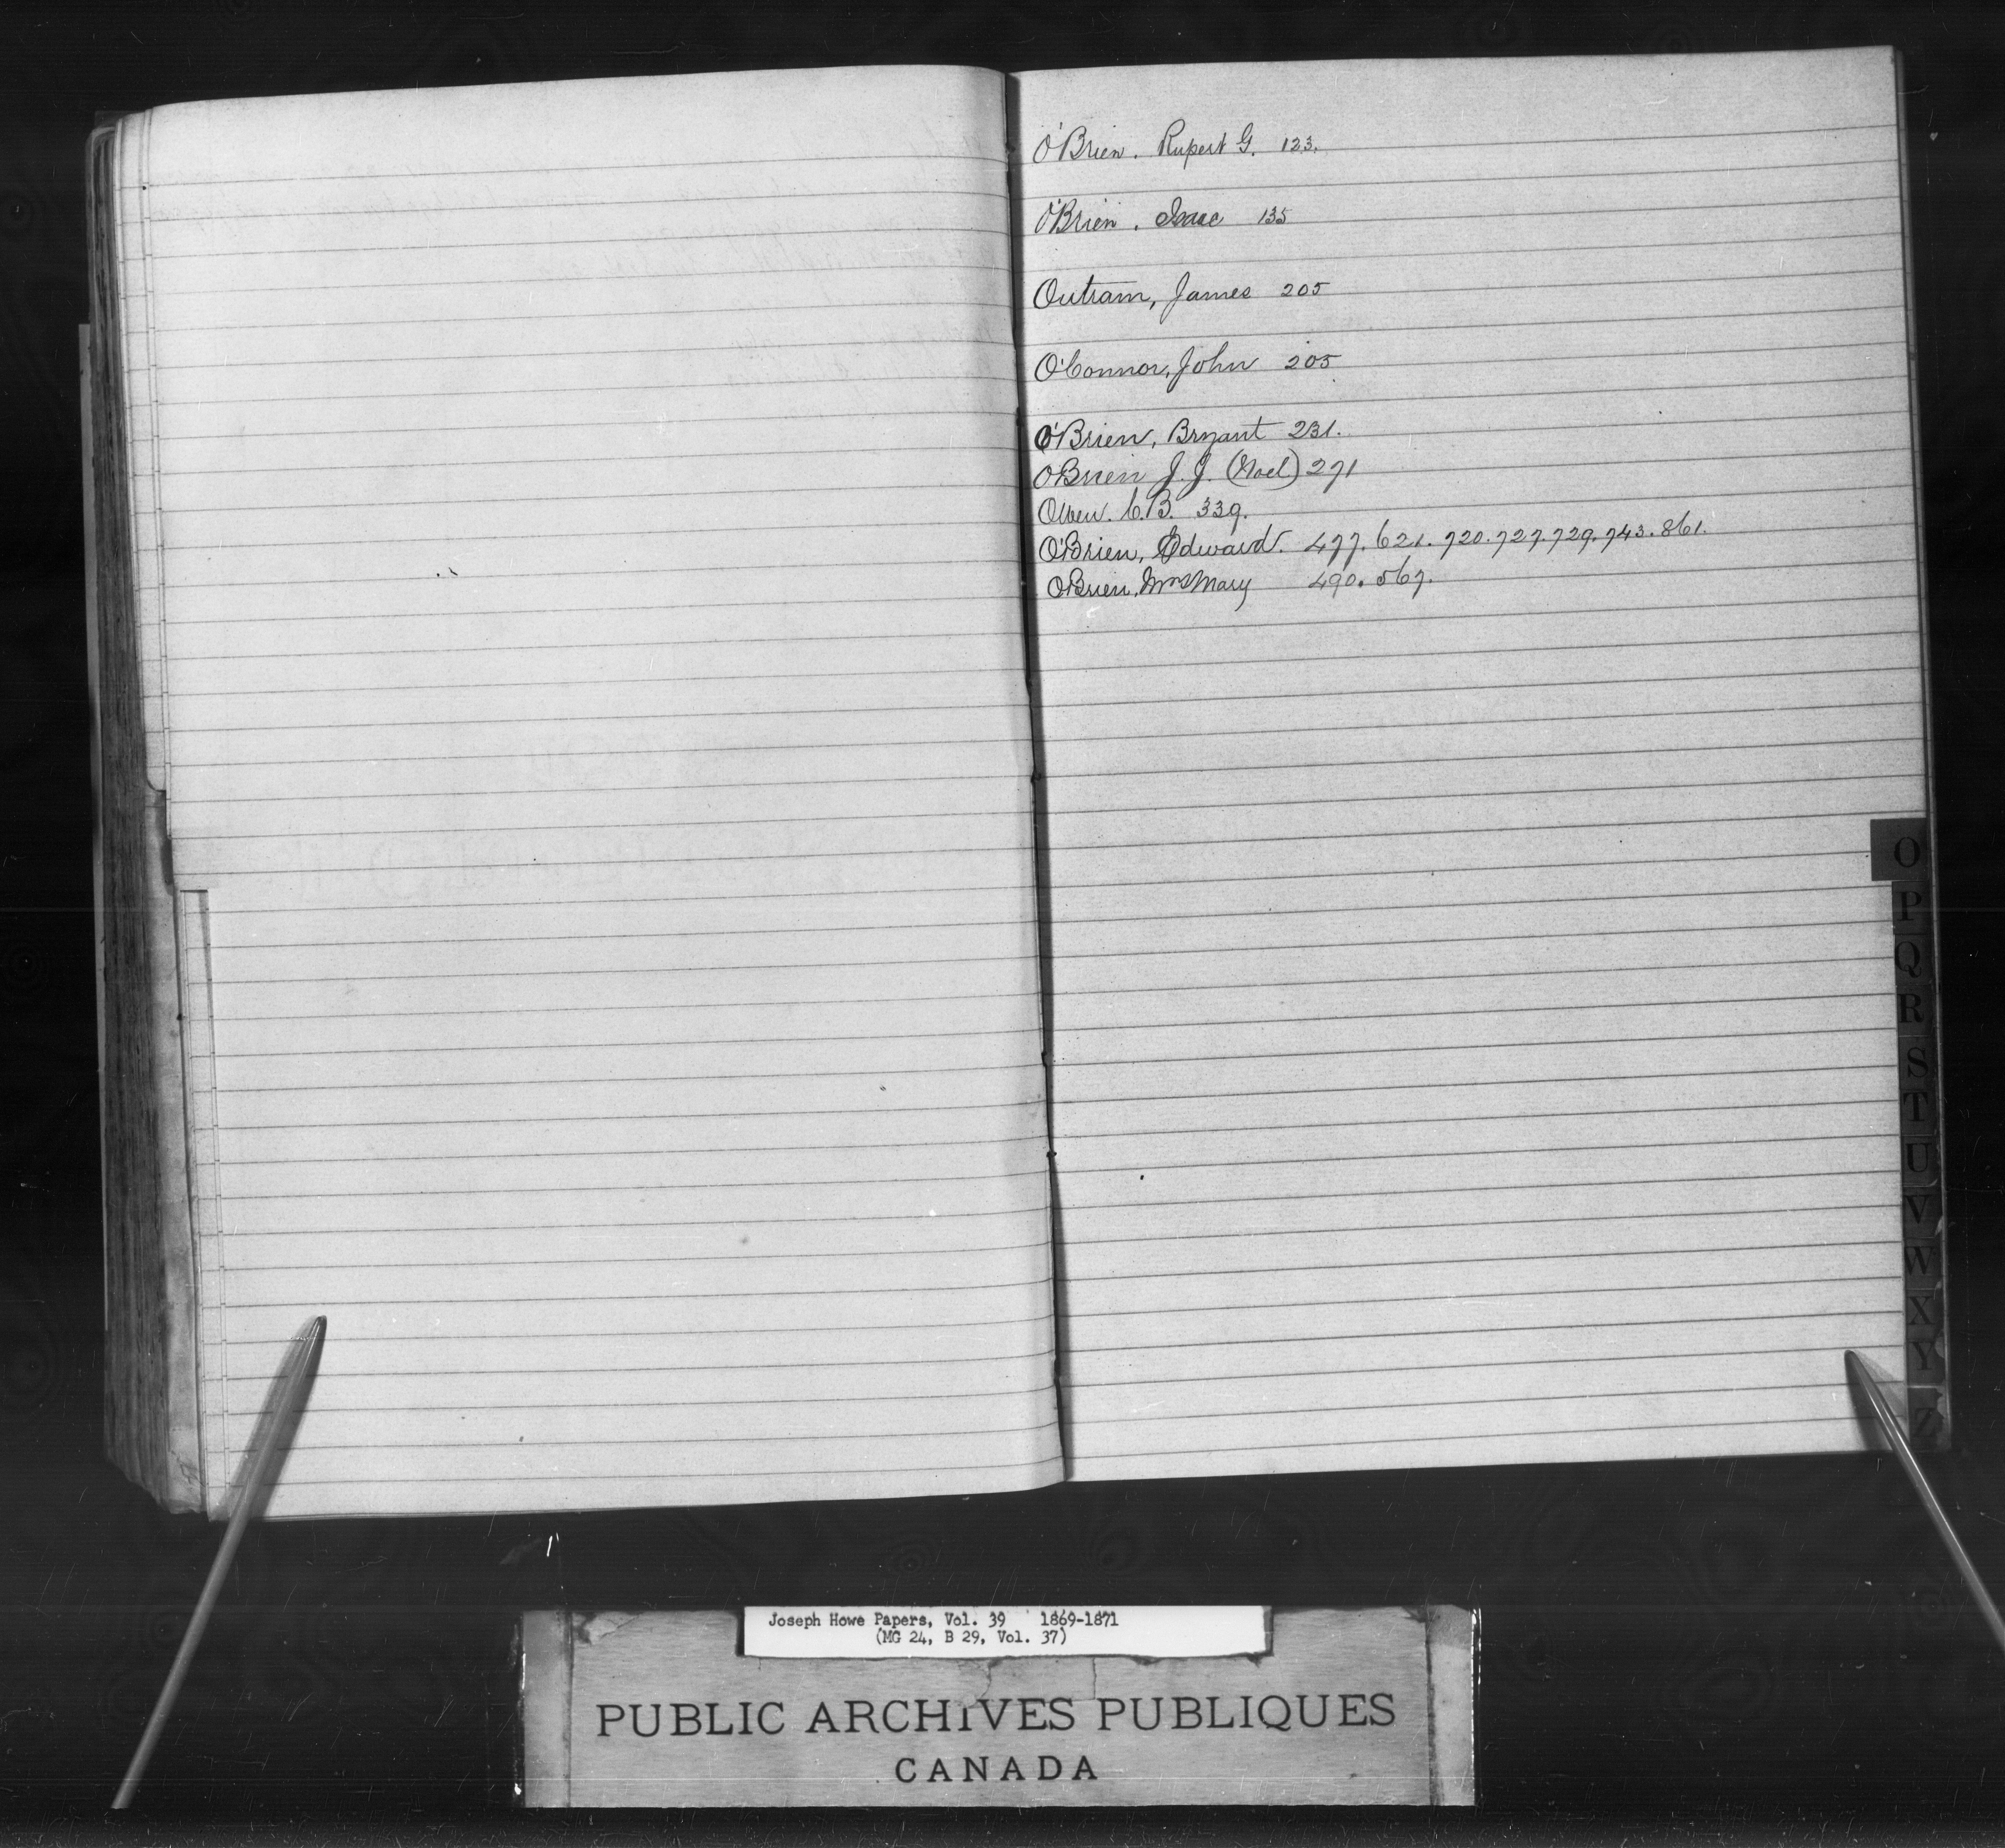 O'Brien. Rupert G. 123.
O'Brien. Isaac 135
Outram, James 205
O'Connor, John 205
O'Brien, Bryant 231.
O'Brien J. J. (Noel) 271
C. B. 339.
O'Brien, Edward. 477. 621. 720. 727. 729. 743. 861.
O'Brien, Mrs Mary 490. 567.
O
P
Q
R
S
T
U
V
W
X
Y
Z
Joseph Howe Papers, Vol. 39 1869-1871
(MG 24, B 29, Vol. 37)
PUBLIC ARCHIVES PUBLIQUES
CANADA